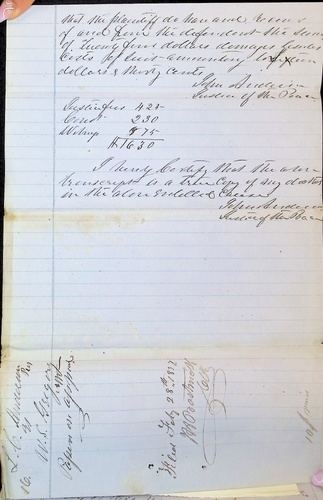 that the plaintiff do have and recover
of and from the defendant the sum
of Twenty five dollars damages besides
costs of suit amounting to
dollars & thirty cents
John Anderson
Justice of the Peace
Justice fees 425
Const 230
Witness 975
$16 30
I hereby Certify that the above
transcript is a true Copy of my docket
in the above Entitled Cause
John Anderson
Justice of the Peace
16.
Anderson
vs
W. S. Gregory
Papers on appeal
Filed Feby 28th
Clerk